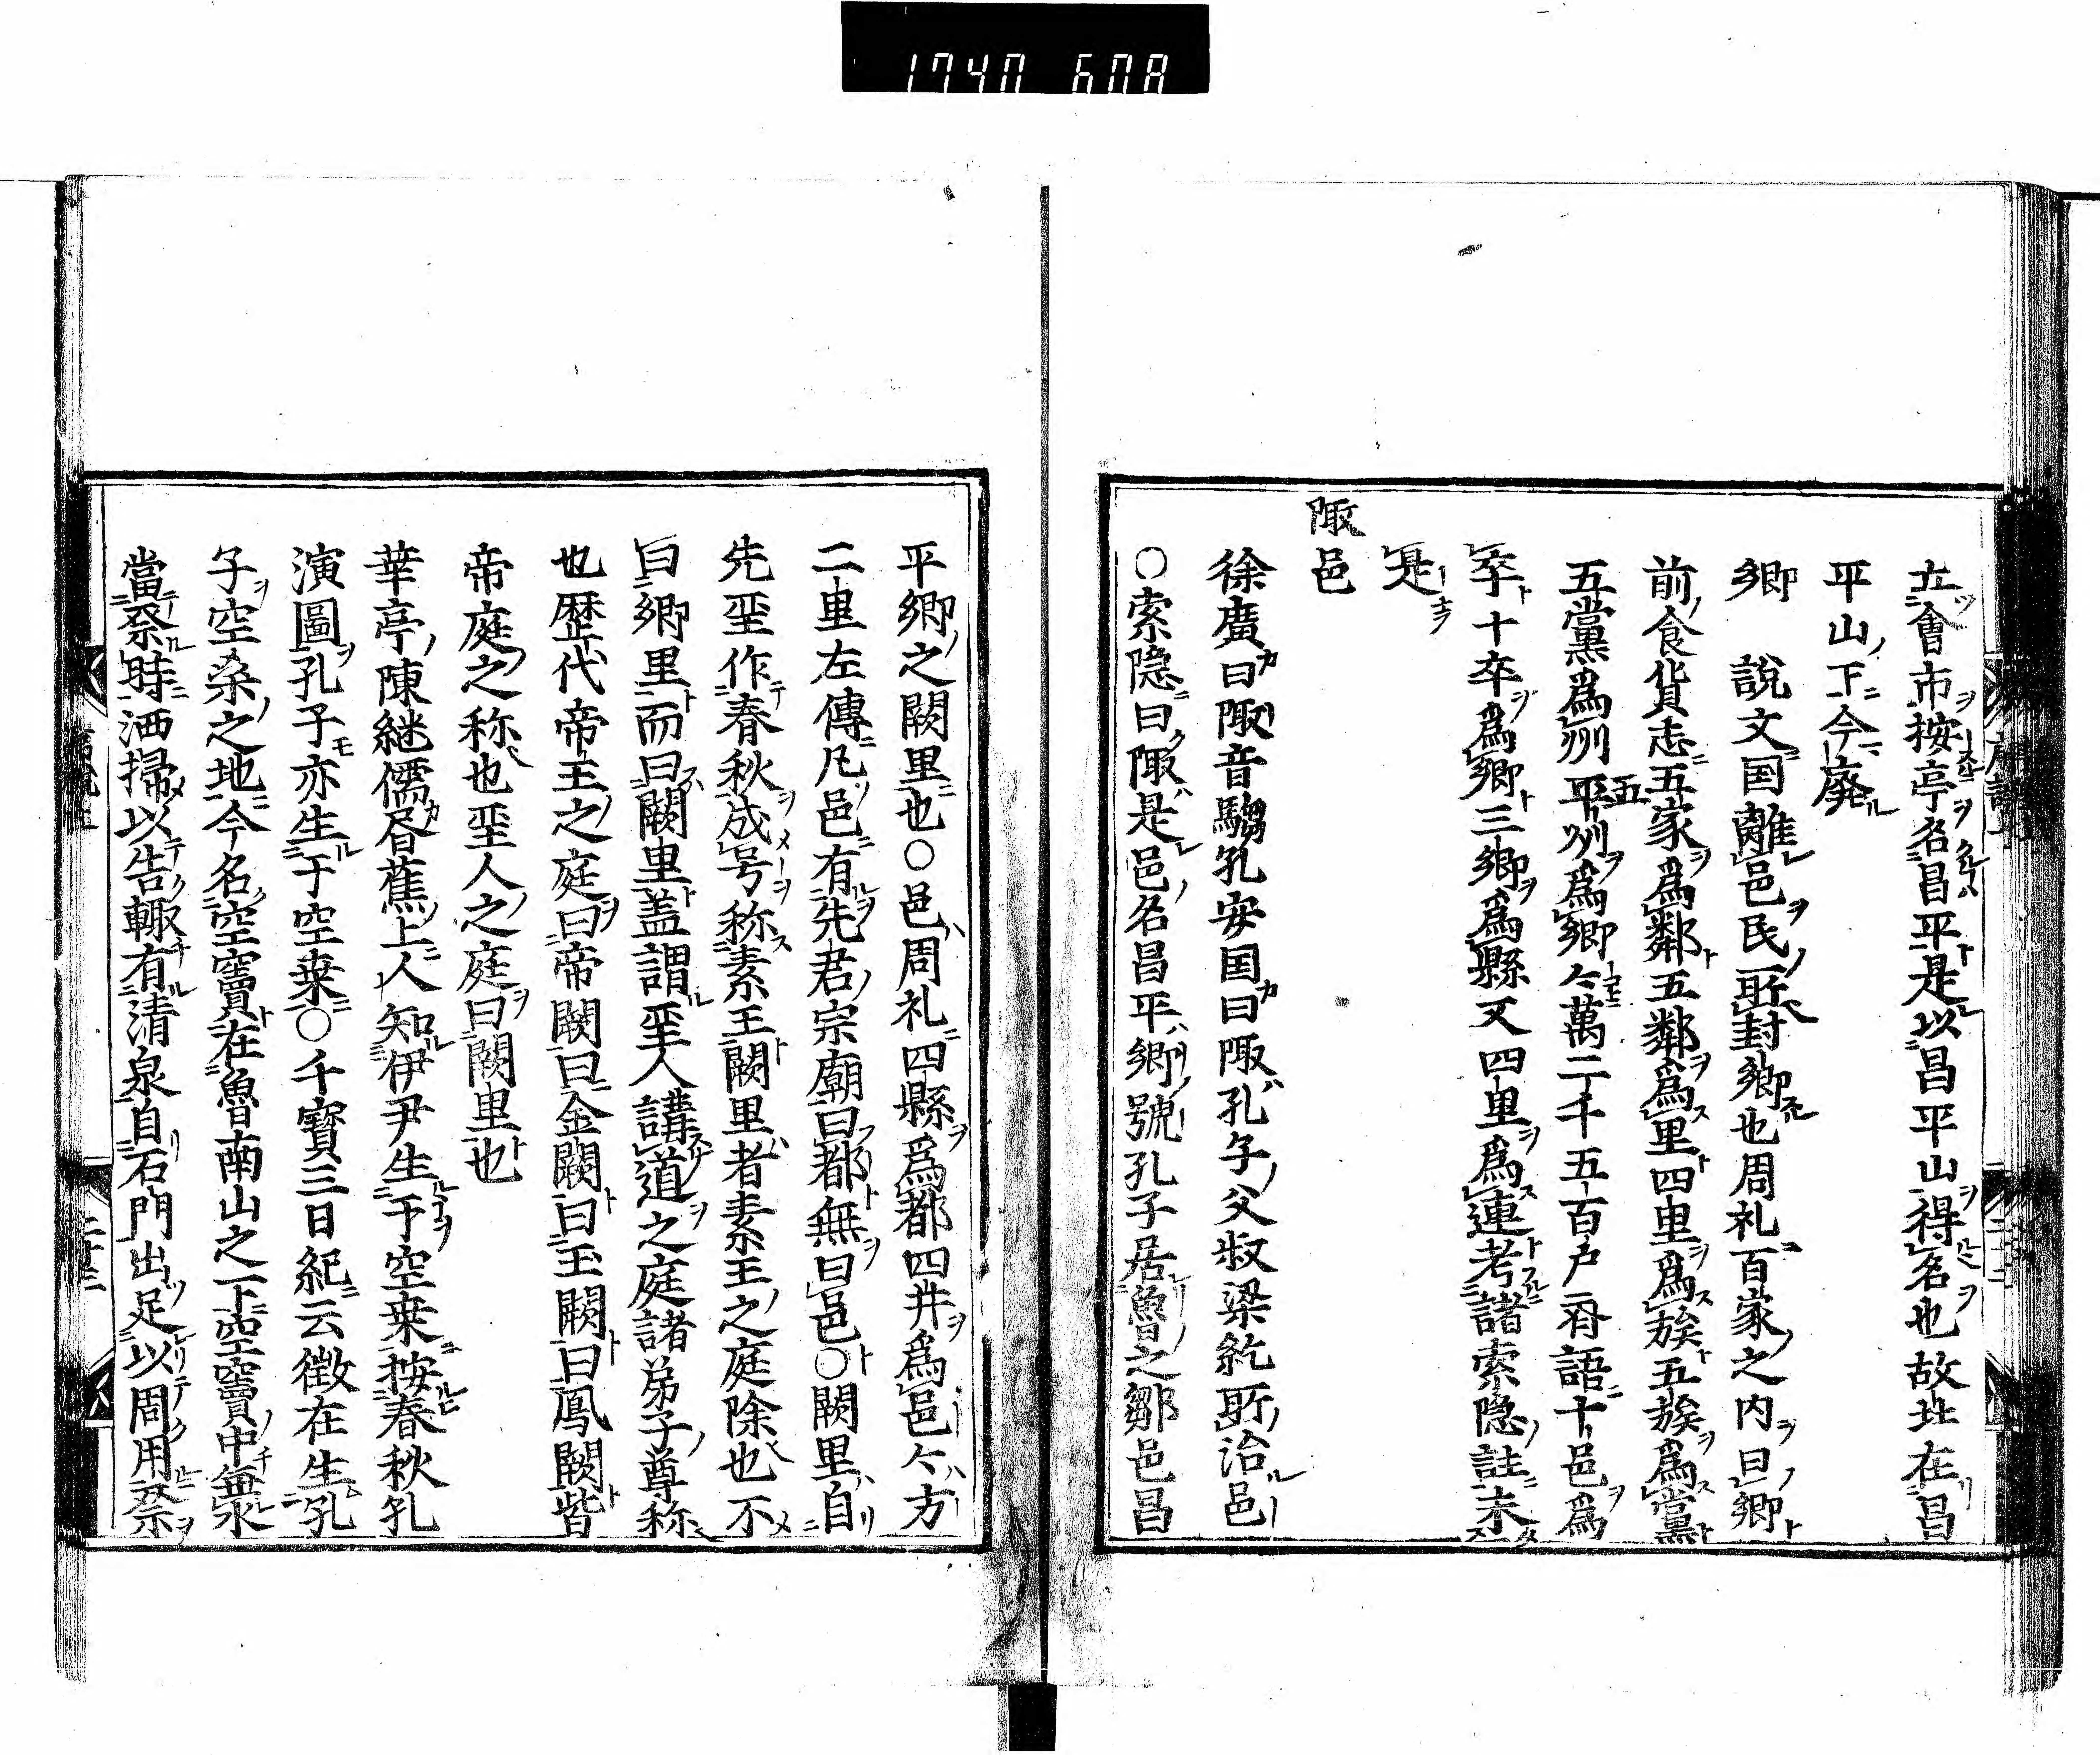 1740 608
立會市按亭名昌平是以昌平山得名也故址在昌
平山下今廃
鄉 說文国離邑民所封鄉也周礼百家之内曰鄉
前食貨志五家爲鄰五鄰爲里四里爲族五族爲黨
五黨爲州五州爲鄉々萬二千五百户 語十邑爲
卒十卒爲鄉三鄉爲縣又四里爲連考諸索隐註未
是
陬邑
徐廣曰陬音騶孔安国曰陬孔子父叔梁紇所治邑
○索隐曰陬是邑名昌平鄉號孔子居魯之鄒邑昌
平鄉之闕里也○邑周礼四縣爲都四井爲邑々方
二里左傳凡邑有先君宗廟曰都無曰邑○闕里自
先聖作春秋成号称素王闕里者素王之庭除也不
曰鄉里而曰闕里盖謂聖人講道之庭諸弟子尊称
也歷代帝王之庭曰帝闕曰金闕曰玉闕曰鳳闕皆
帝庭之称也聖人之庭曰闕里也
華亭陳継儒眉蕉上人知伊尹生于空桒按春秋孔
演圖孔子亦生于空桒○干寶三日紀云徵在生孔
子空桑之地今名空竇在魯南山之下空竇中無水
當祭時洒掃以告輙有清泉自石門出足以周用祭